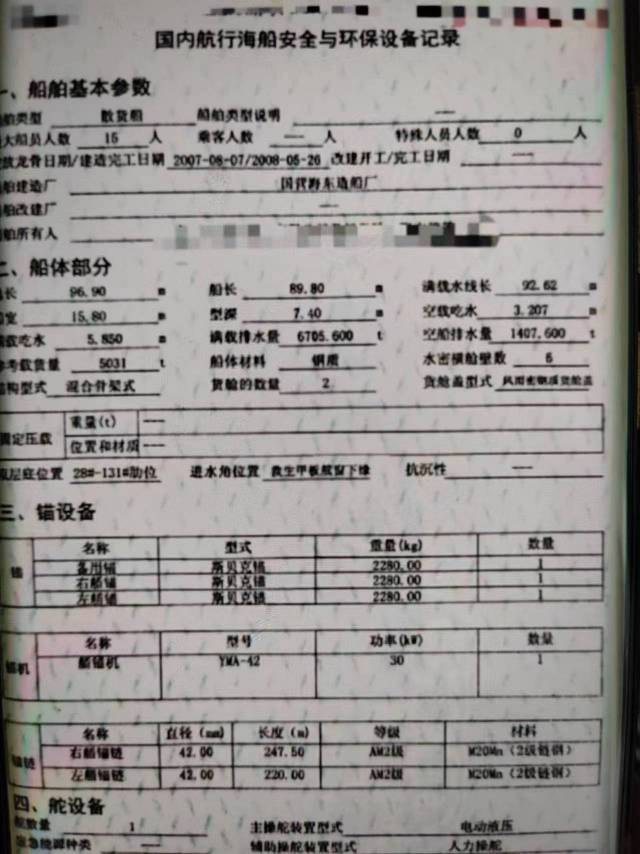 国内航行海船安全与环保设备记录
一、船舶基本参数
船舶类型 散货船 船舶类型说明 ——
大船员人数 15 人 乘客人数 —— 人 特殊人员人数 0 人
放龙骨日期/建造完工日期 2007-08-07/2008-05-26 改建开工/完工日期 ——
船舶建造厂 造船厂
船舶改建厂 ——
船舶所有人
二、船体部分
长 96.90 m 船长 89.80 m 满载水线长 92.62 m
宽 15.80 m 型深 7.40 m 空载吃水 3.207 m
载吃水 5.850 m 满载排水量 6705.600 t 空船排水量 1407.600 t
参考载货量 5031 t 船体材料 钢质 水密横舱壁数 6
结构型式 混合骨架式 货舱的数量 2 货舱盖型式 风雨密钢质货舱盖
固定压载 重量(t) ——
位置和材质 ——
双层底位置 28#-131#肋位 进水角位置 救生甲板舷窗下缘 抗沉性 ——
三、锚设备
名称 型式 重量(kg) 数量
锚 备用锚 斯贝克锚 2280.00 1
右艏锚 斯贝克锚 2280.00 1
左艏锚 斯贝克锚 2280.00 1
名称 型号 功率(kW) 数量
锚机 艏锚机 YMA-42 30 1
名称 直径 (mm) 长度 (m) 等级 材料
锚链 右艏锚链 42.00 247.50 AM2级 M20Mn (2级链钢)
左艏锚链 42.00 220.00 AM2级 M20Mn (2级链钢)
四、舵设备
舵数量 1 主操舵装置型式 电动液压
应急能源种类 —— 辅助操舵装置型式 人力操舵